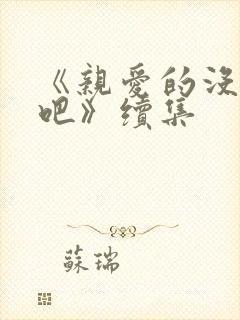 《親愛的沒
吧》續集
蘇瑞